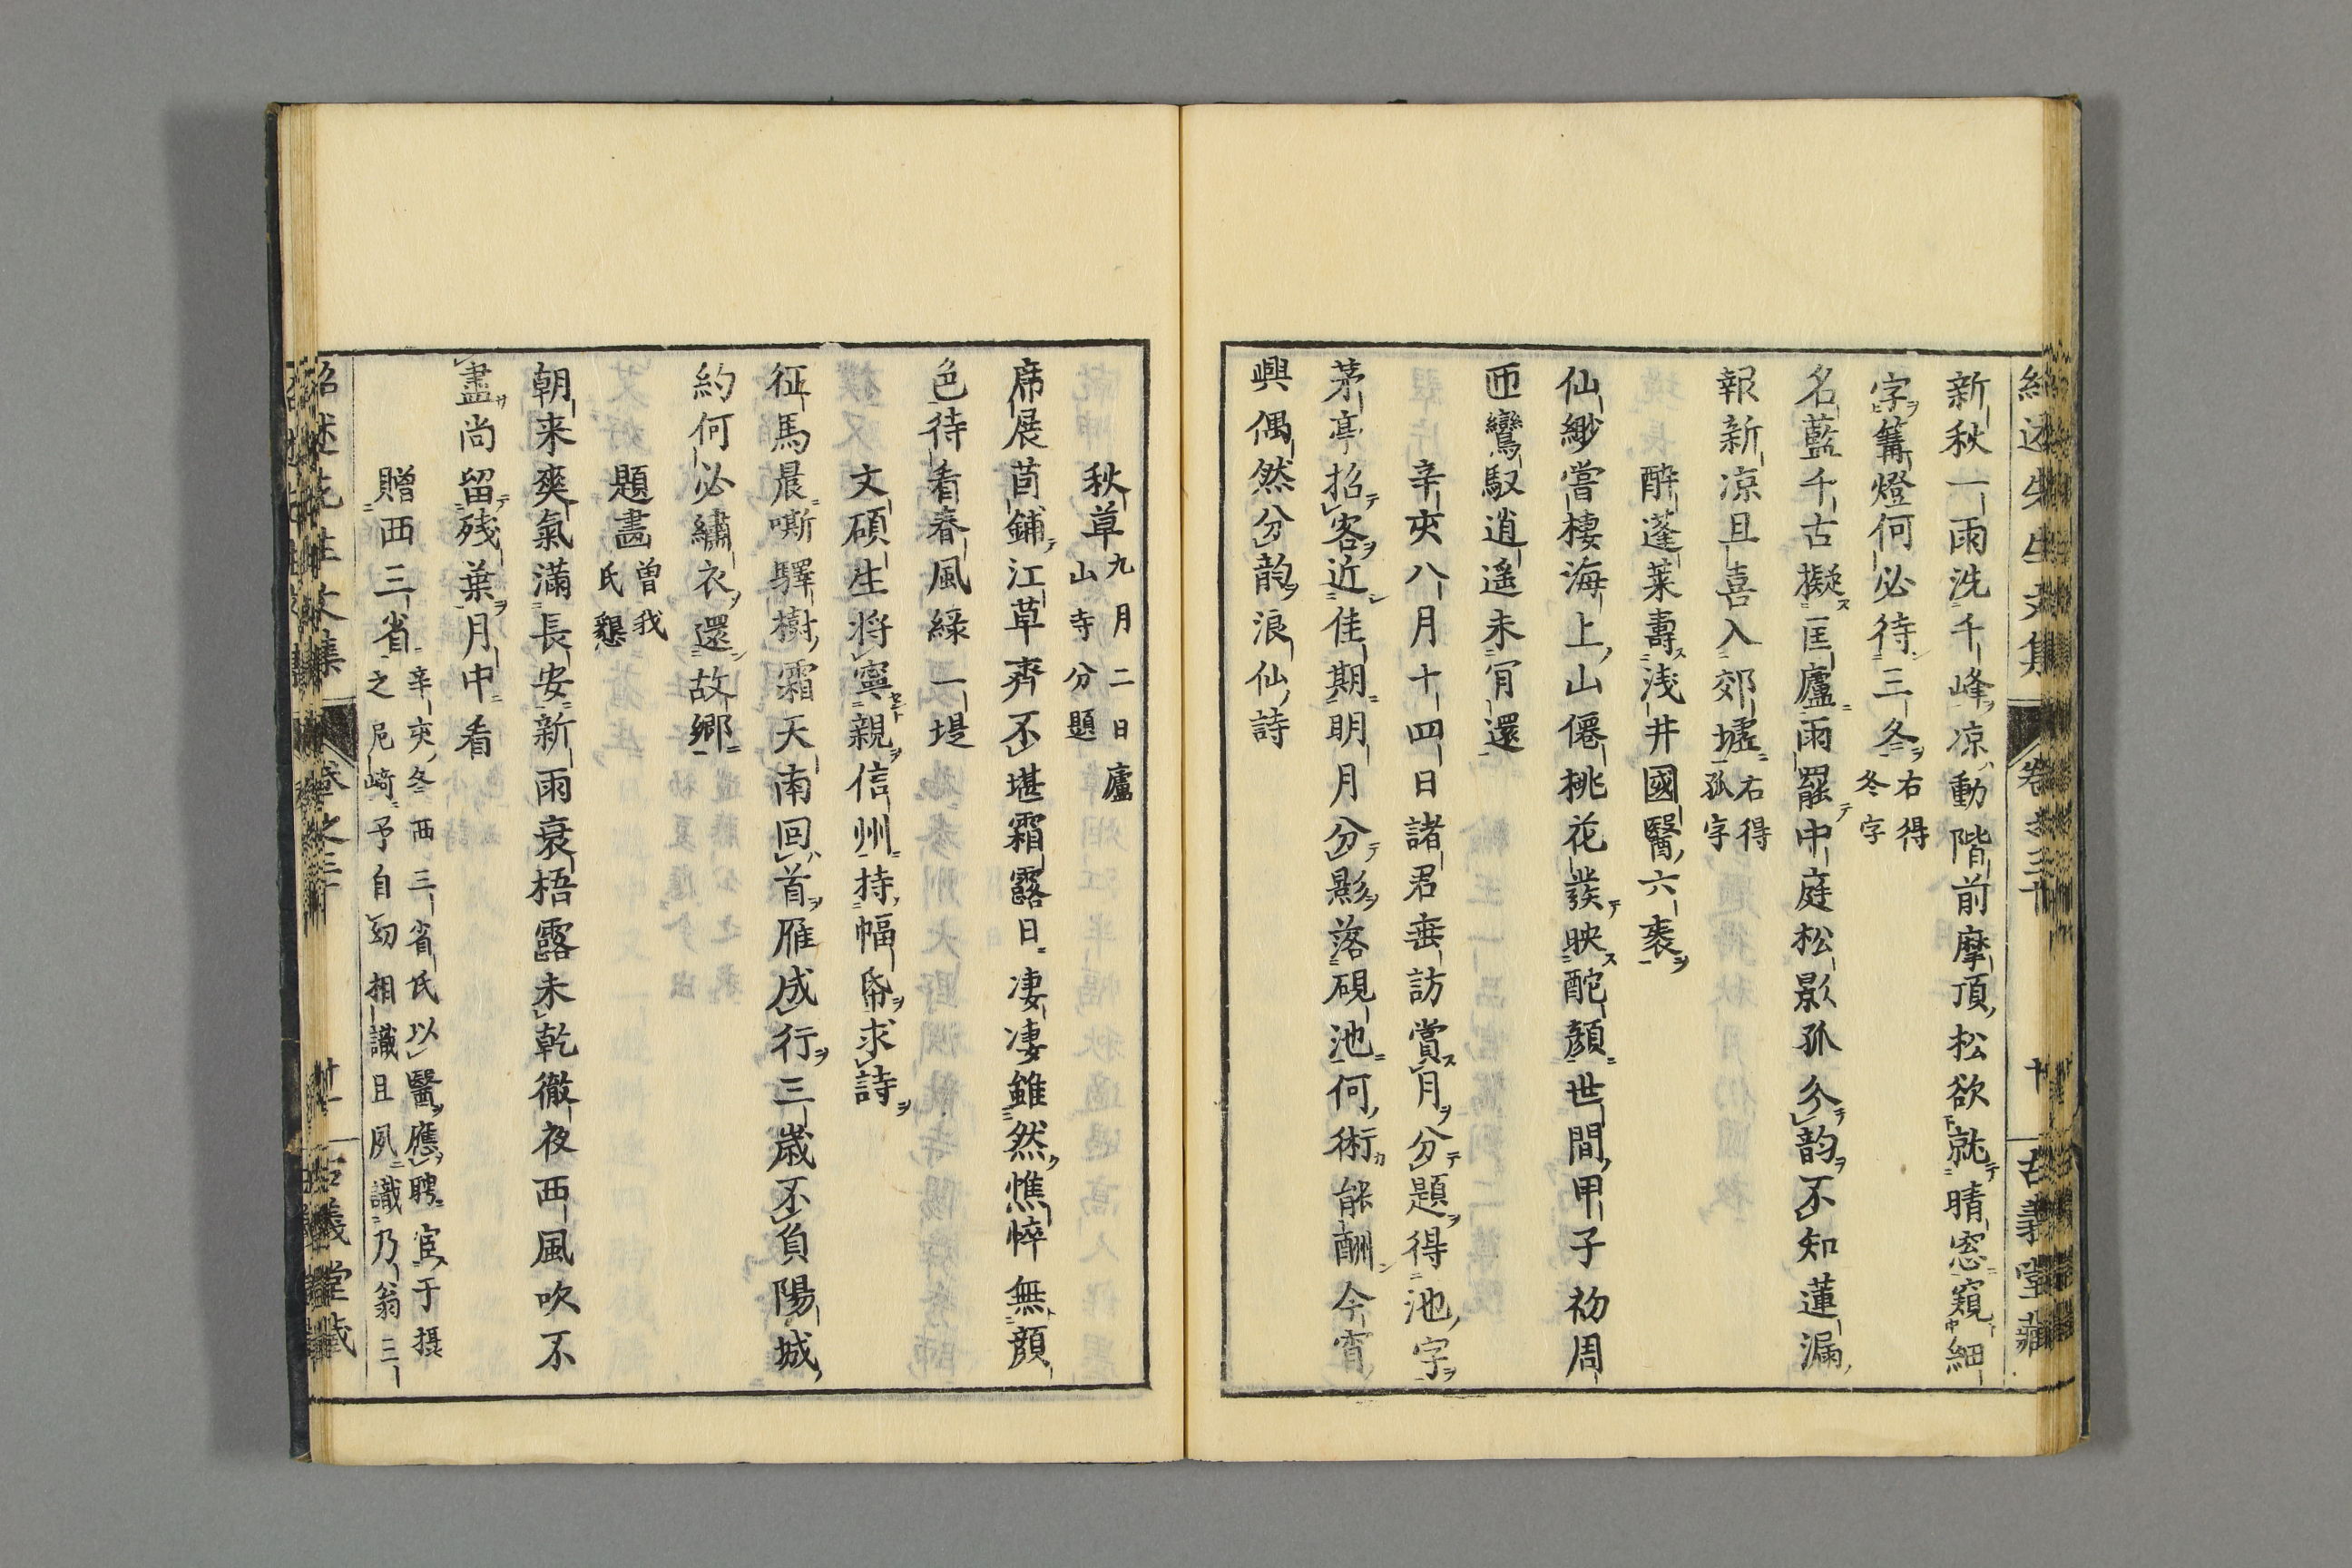 紹述先生文集 卷之三十 十 古義堂藏
新秋一雨洗千峰凉動階前摩頂松欲就晴窓窺細
字篝燈何必待三冬右得冬字
名藍千古擬匡廬雨罷中庭松影孤分韵不知蓮漏
報新凉且喜入郊墟右得孤字
醉蓬莱壽浅井國醫六袠
仙緲嘗棲海上山僊桃花發映酡顔世間甲子初周
匝鸞馭逍遥未肯還
辛夾八月十四日諸君垂訪賞月分題得池字
茅亭招客近佳期明月分影落硯池何術能酬今宵
興偶然分韵浪仙詩
秋草九月二日廬山寺分題
席展茵鋪江草齊不堪霜露日凄凄雖然憔悴無顔
色待看春風緑一堤
文碩生将寧親信州持幅帋求詩
征馬晨嘶驛樹霜天南回首雁成行三歳不負陽城
約何必繡衣還故郷
題畫曽我氏懇
朝来爽氣滿長安新雨衰梧露未乾徹夜西風吹不
盡尚留残葉月中看
贈西三省辛夾冬西三省氏以醫應聘宦于摂之尼﨑予自幼相識且夙識乃翁三
紹述先生文集 卷之三十 十一 古義堂藏